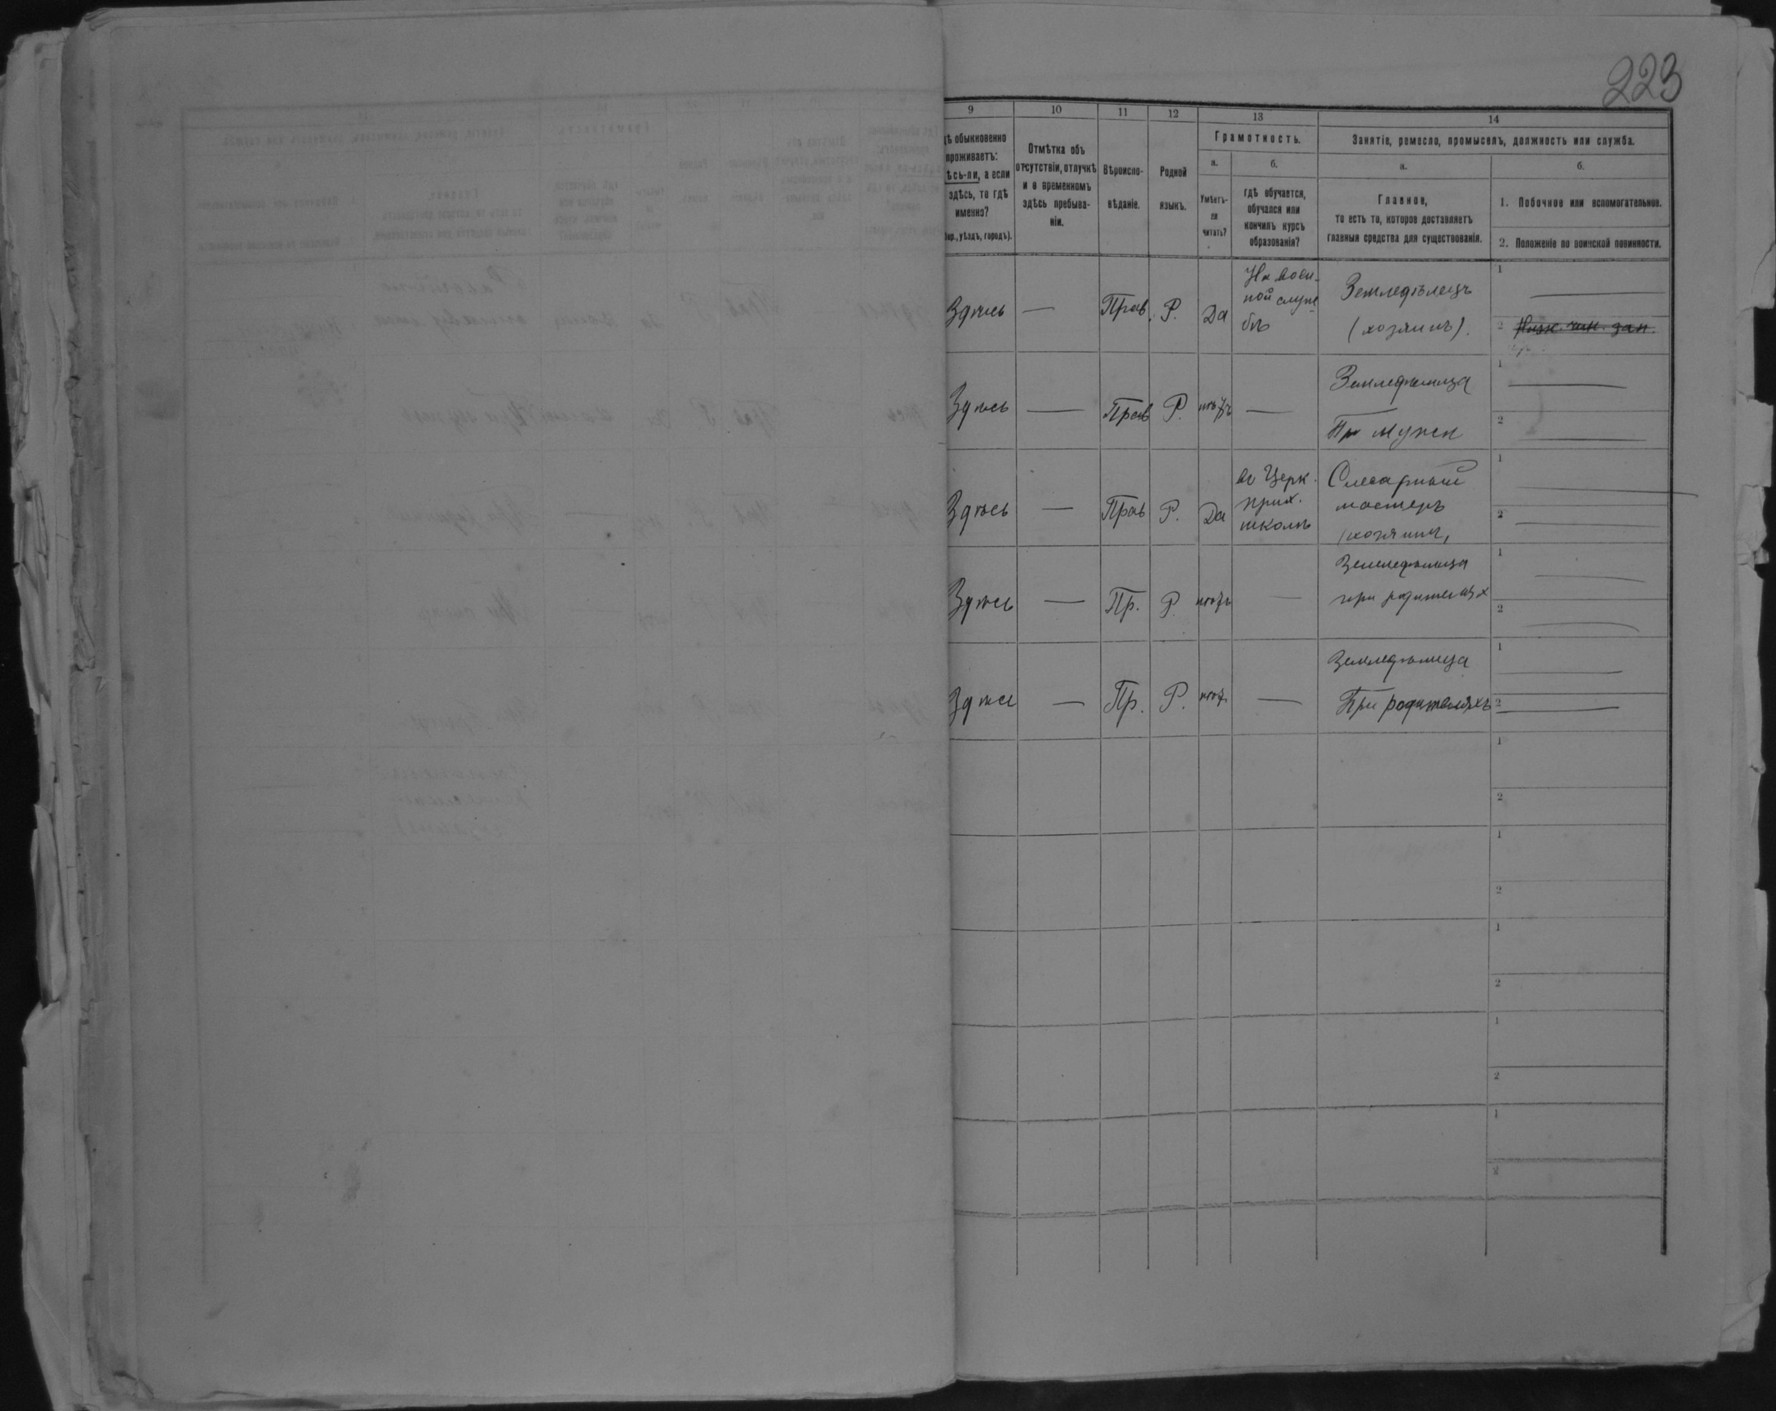 223
9 10 11 12 13 14
обыкновенно
проживаетъ:
а если
здѣсь, то гдѣ
именно?
уѣздъ, городъ).
Отмѣтка объ
отсутствіи, отлучкѣ
и о временномъ
здѣсь пребыва-
ніи.
Вѣроиспо-
вѣданіе.
Родной
языкъ.
Грамотность.
а.
Умѣетъ-
ли
читать?
б.
гдѣ обучается,
обучался или
кончилъ курсъ
образованія?
Занятіе, ремесло, промыселъ, должность или служба.
а.
Главное,
то есть то, которое доставляетъ
главныя средства для существованія.
б.
1. Побочное или вспомогательное.
2. Положеніе по воинской повинности.
Здѣсь — Прав. Р. Да На воен-
ной служ-
бѣ
Земледѣлецъ
(хозяинъ).
1
2 Нижн. чин. зап.
Здѣсь — Прав Р. нѣтъ —
Земледѣлица
При мужѣ
1
2
Здѣсь — Прав Р. Да въ Церк.
прих.
школѣ
Слесарный
мастеръ
(хозяинъ)
1
2
Здѣсь — Пр. Р. нѣтъ —
Земледѣлица
при родителяхъ
1
2
Здѣсь — Пр. Р. нѣтъ —
Земледѣлица
При родителяхъ
1
2
1
2
1
2
1
2
1
2
1
2